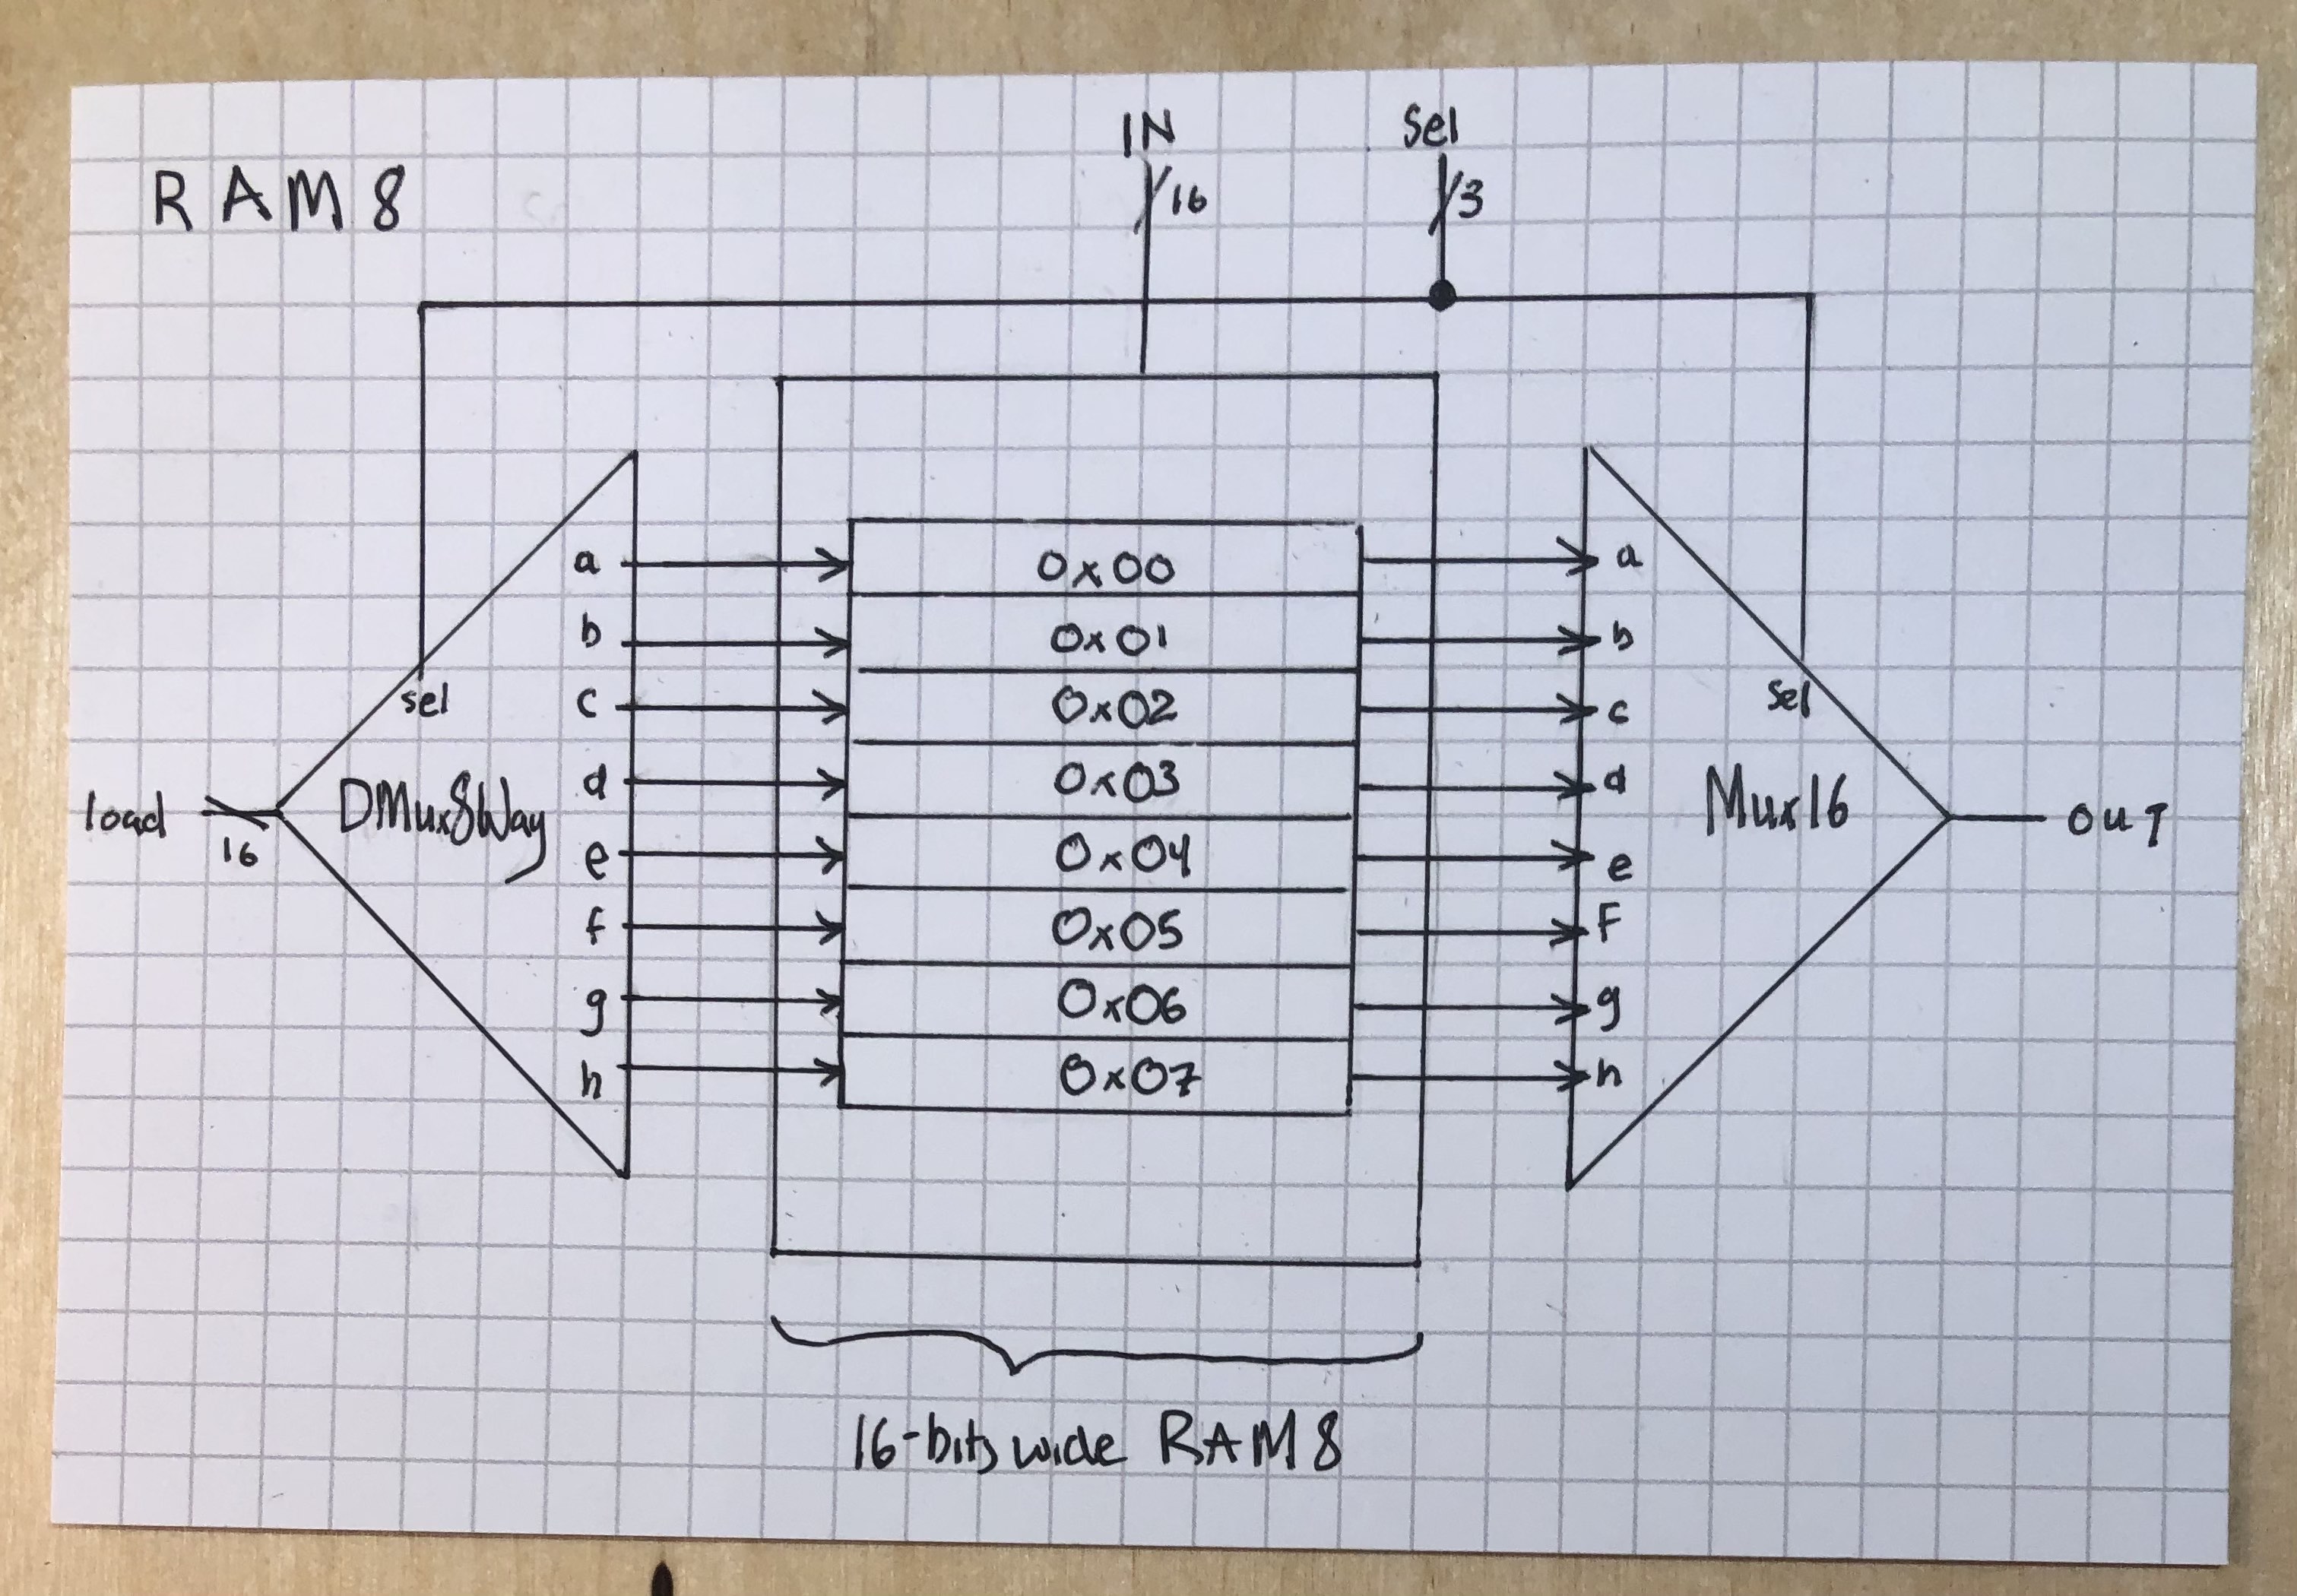 RAM8
IN
16
Sel
3
a
b
c
d
e
f
g
h
sel
DMux8Way
load
16
0x00
0x01
0x02
0x03
0x04
0x05
0x06
0x07
a
b
c
d
e
F
g
h
Sel
Mux16
OUT
16-bits wide RAM8